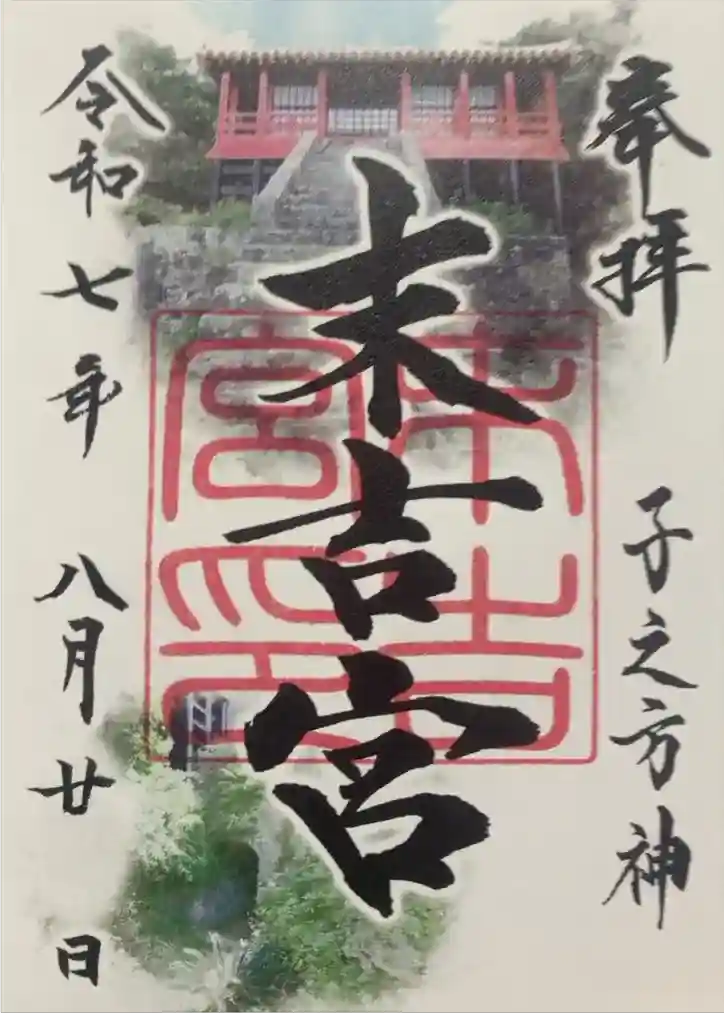 奉拝
子之方神
末吉宮
末吉
宮印
令和七年八月廿日